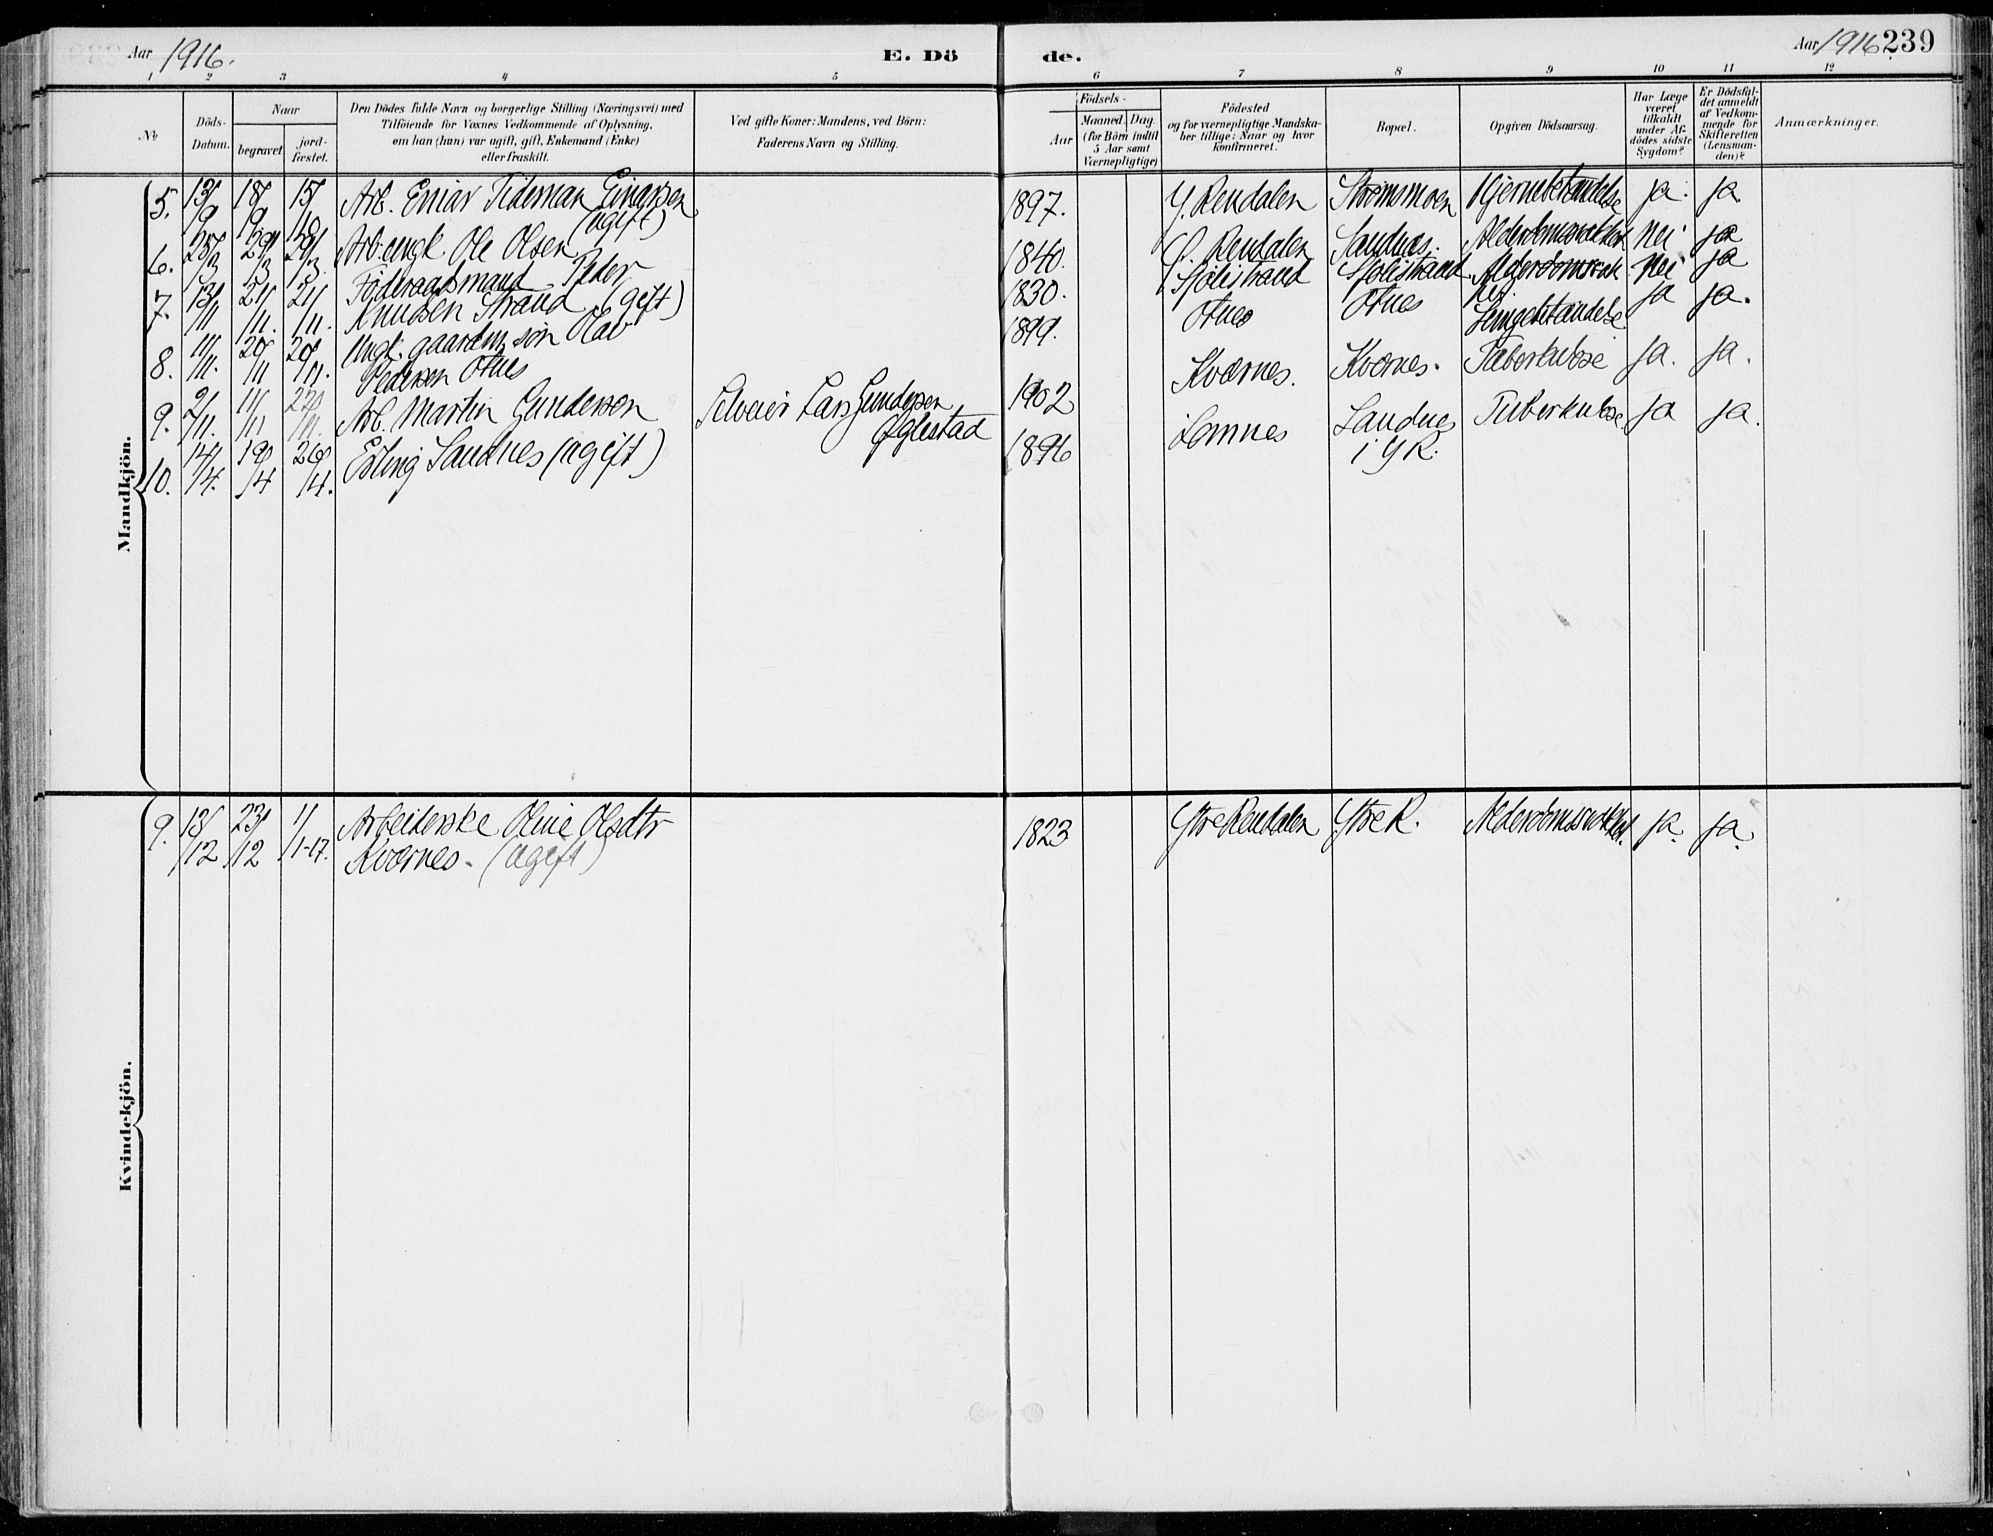 Aar 1916. E. Dö de. Aar 1916 239
1 2 3 4 5 6 7 8 9 10 11 12
No
Döds-
Datum.
Naar
begravet
jord-
fæstet.
Den Dödes fulde Navn og borgerlige Stilling (Næringsvei) med
Tilföiende for Voxnes Vedkommende af Oplysning,
om han (hun) var ugift, gift, Enkemand (Enke)
eller fraskilt.
Ved gifte Koner: Mandens, ved Börn:
Faderens Navn og Stilling.
Födsels-
Aar
Maaned. Dag
(for Börn indtil
5 Aar samt
Værnepligtige)
Födested
og for værnepligtige Mandska-
ber tillige: Naar og hvor
konfirmeret.
Bopæl.
Opgiven Dödsaarsag.
Har Læge
været
tilkaldt
under Af-
dödes sidste
Sygdom?
Er Dödsfal-
det anmeldt
af Vedkom-
mende for
Skifteretten
(Lensman-
den)?
Anmærkninger.
Mandkjön.
5. 13/9 18/9 15/10 Arb. Einar Tideman Einarsen (ugift) 1897. Y. Rendalen Strømsmoen Hjernebetændelse ja. ja
6. 29/3 Arb. ungk. Ole Olsen 1840. Y. Rendalen Sandnes. nei ja
7. Föderaadsmand Peder
Knudsen Strand (gift) 1830. Sjölistrand Sjölistrand nei ja
8. 11/11. 20/11 20/11. Ungk. gaardm. søn Olav
Pedersen Otnes 1899. Otnes Otnes Lungebetændelse ja ja.
9. 9/11. 11/11 Arb. Martin Gunderson Selveier Lars Gundersen
Øglestad 1902 Kværnes. Kværnes. Tuberkulose ja. ja.
10. 14/4. 19/4 26/4. Erling Sandnes (ugift) 1896 Lomnes Sandnes
i Y R. Tuberkulose ja ja.
Kvindekjön.
9. 13/12 23/12 1/1-17. Arbeiderske Oline Olsdtr
Kværnes. (ugift) 1823 Ytre Rendalen Ytre R. Alderdomssvakhet. ja. ja.